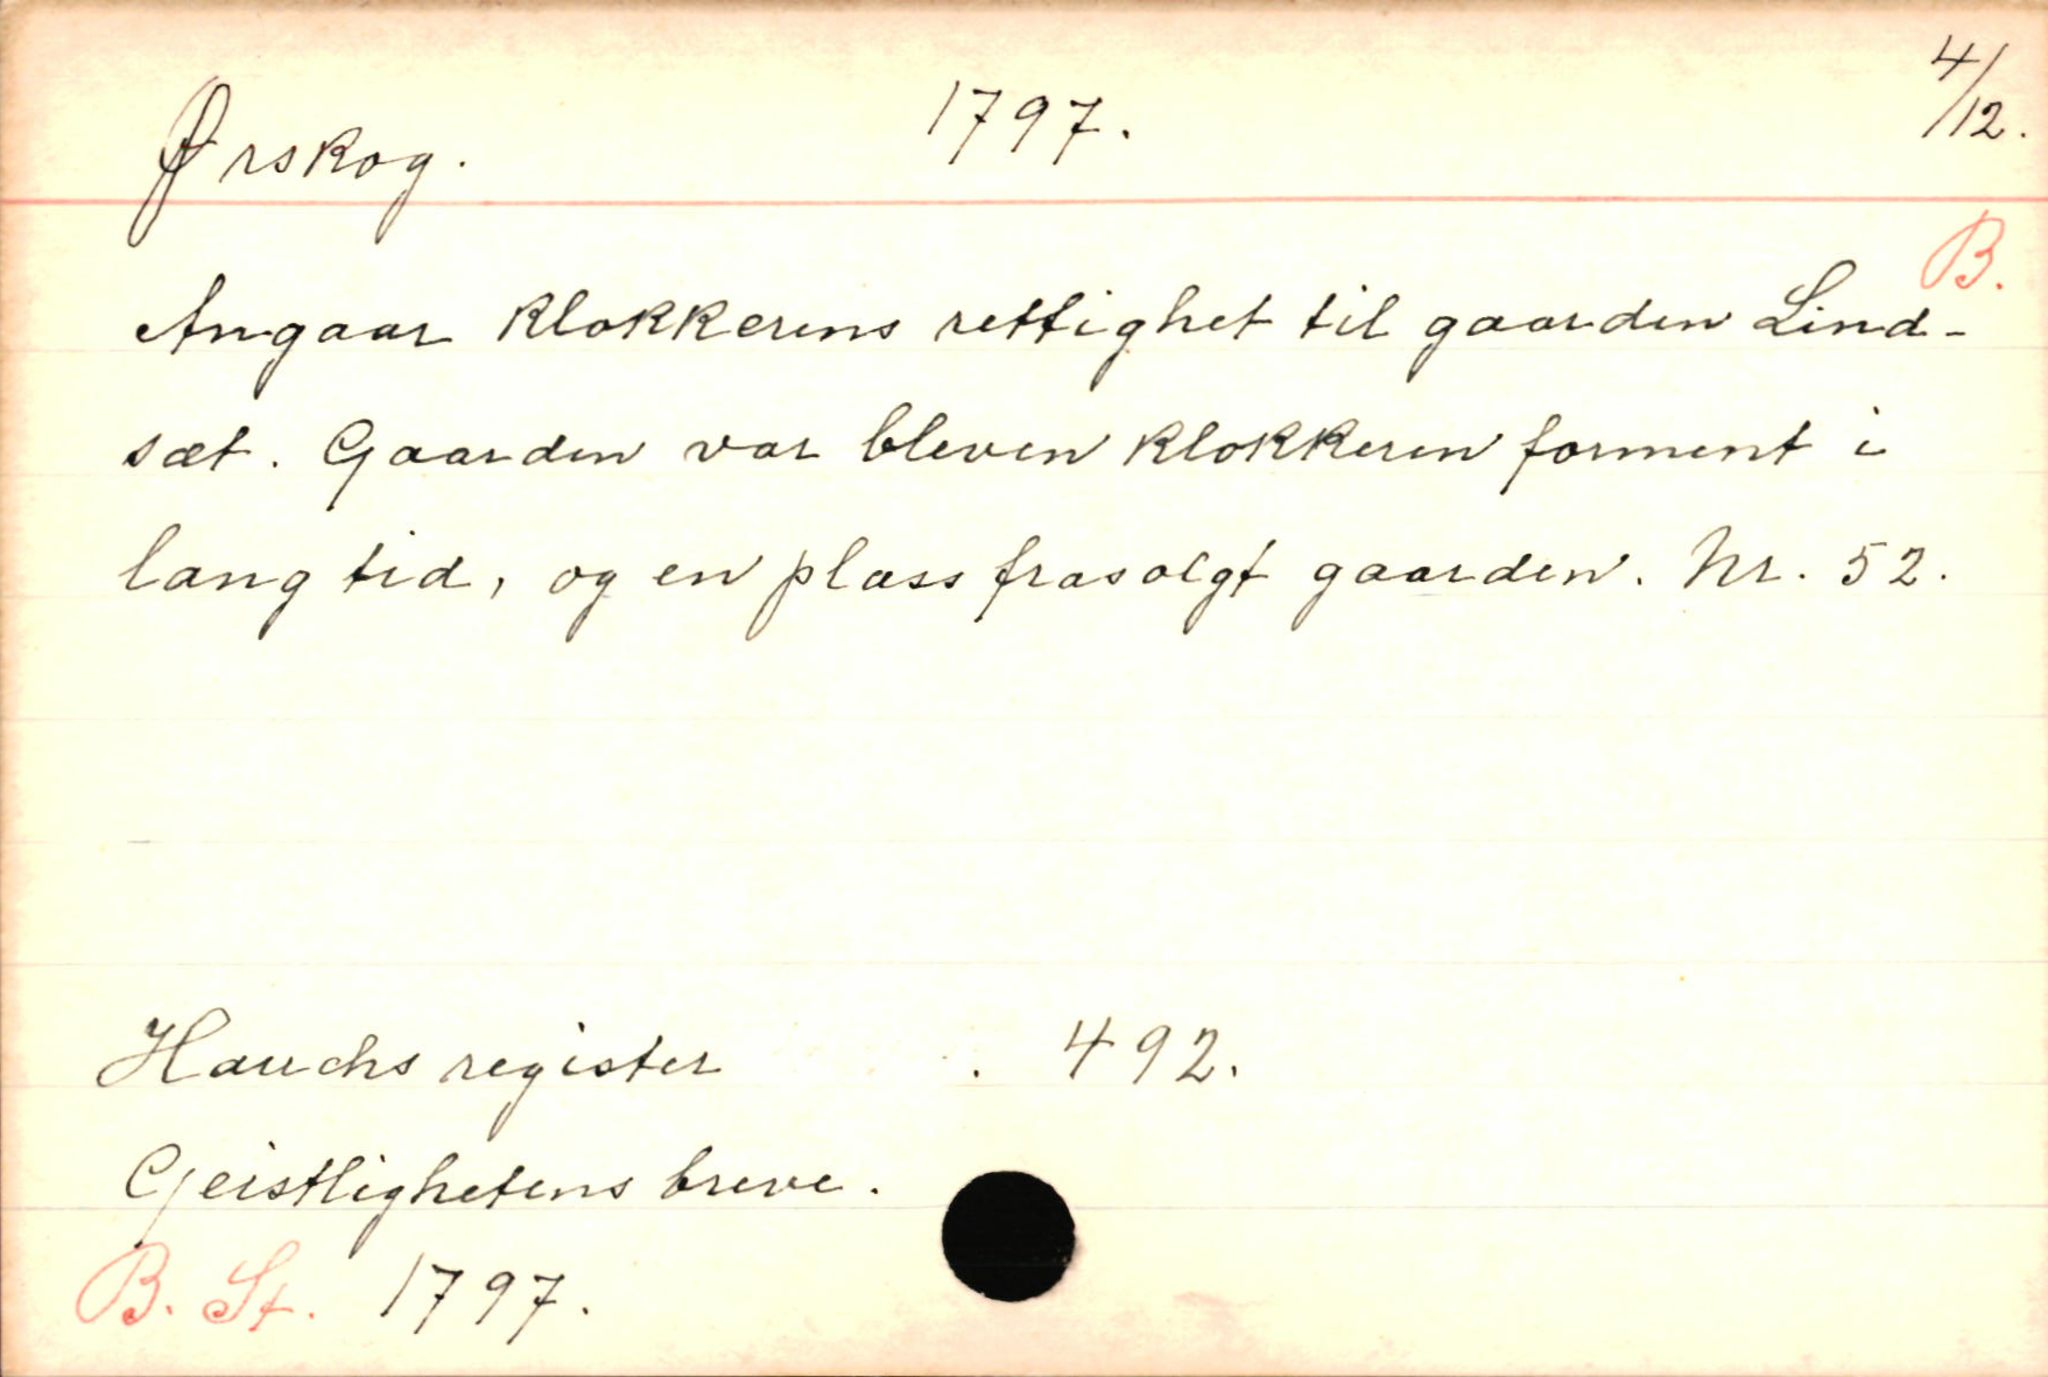 Ørskog. 1797. 4/12.
B.
Angaar klokkerens rettighet til gaarden Lind-
sæt. Gaarden var bleven klokkeren forment i
lang tid, og en plass frasolgt gaarden. Nr. 52.
Hauchs register . 492.
Geistlighetens breve.
B. St. 1797.